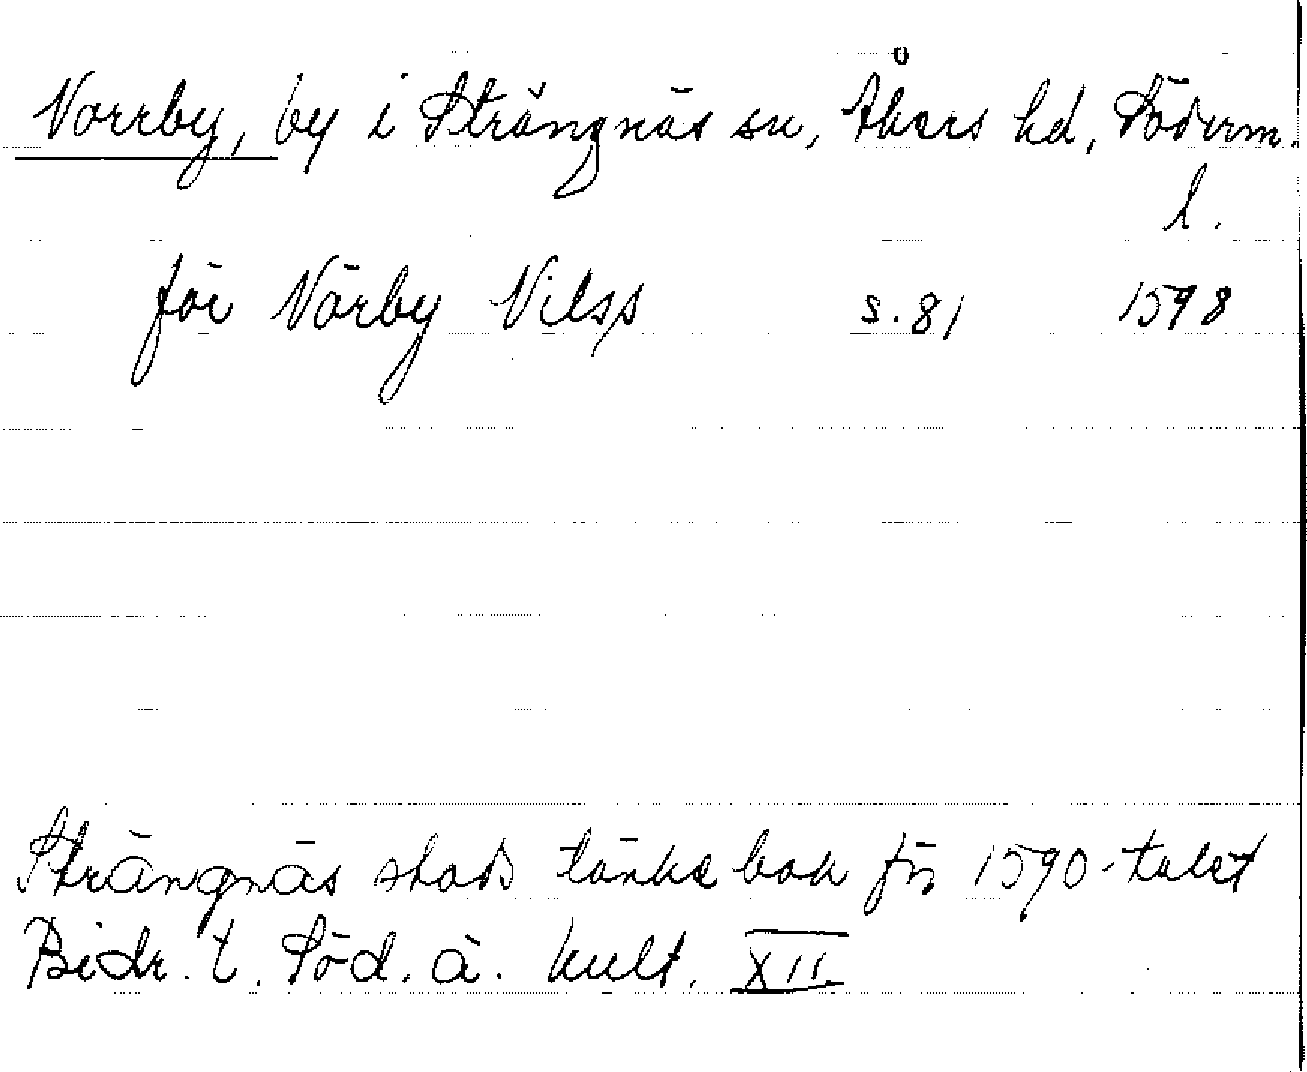 Norrby, by i Strängnäs sn, Åkers hd, Söderm.
l.
för Nörby Nilss s. 81 1598
Strängnäs stads tänkebok för 1590-talet
Bidr. t. Söd. ä. kult. XII